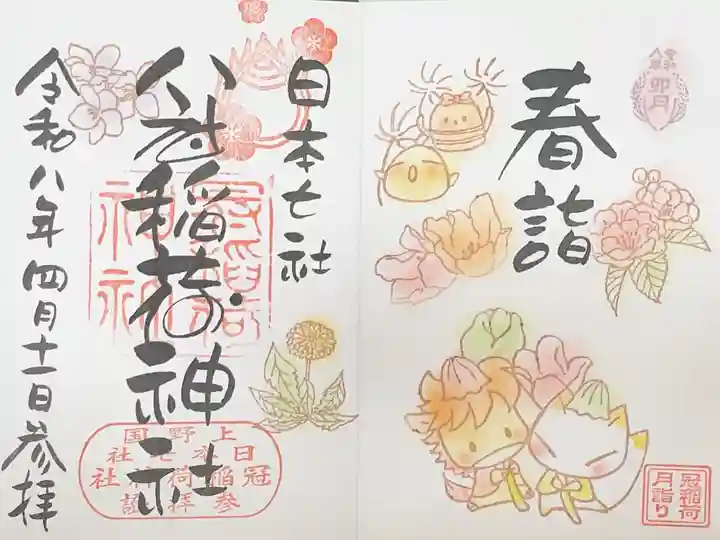 春詣
卯月
冠稲荷
月詣り
日本七社
冠稲荷神社
上野国
日本七社
冠稲荷神社
参拝
令和八年四月十一日参拝